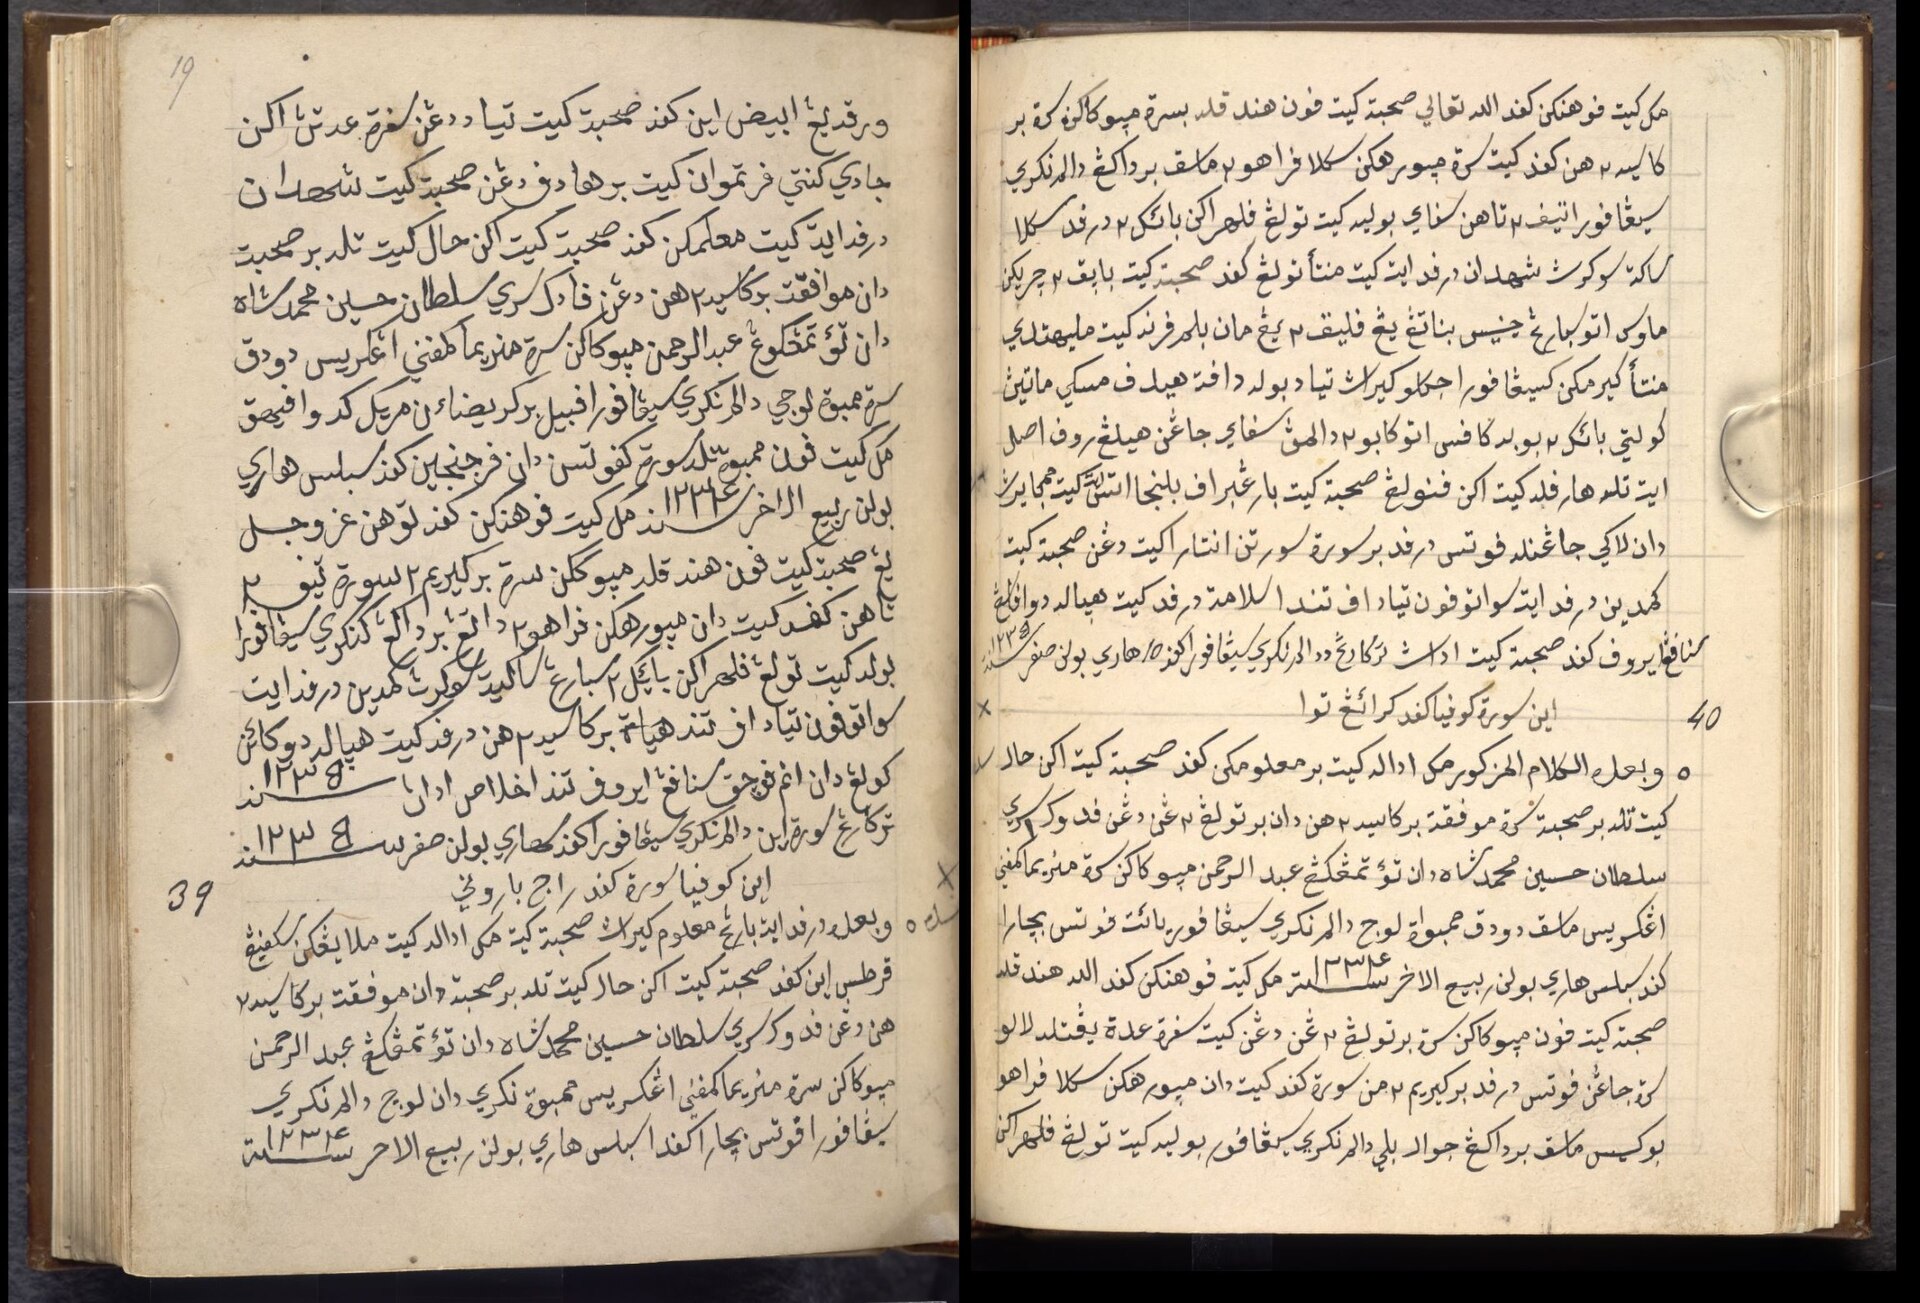 19
ورقديڠ ابيض اين كفد صحبة كيت تياد دڠن سفرة عدتڽ اكن
جادي كنتي فرتموان كيت برهادف دڠن صحبة كيت شهدان
درفد ايت كيت معلمكن كفد صحبة كيت اكن حال كيت تله برصحبة
دان موافقت بركاسيه٢هن دڠن فادك سري سلطان حسين محمد شاه
دان تؤ تمڠكوڠ عبد الرحمن مپوكاكن سرة منريما كمفني اڠكريس دودق
سرة ممبوة لوجي دالم نكري سيڠافورا
مك كيت فون ممبوة تله سورة كفوتسن دان فرجنجين كفد سبلس هاري
بولن ربيع الاخر سنة ١٢٣٤ مك كيت فوهنكن كفد توهن عز وجل
يڠ صحبة كيت فون هندقله مپوككن سرة بركيريم٢ سورة تيف٢
تاهن كفد كيت دان مپورهكن فراهو٢ داتڠ برداڬڠ كنكري سيڠافورا
بوله كيت تولڠ فلهراكن بائك٢ سبارڠ ساكيت سوكرڽ كمدين درفد ايت
سواتوفون تياد اف تند حياة بركاسيه٢هن درفد كيت هياله دوكائن
كولڠ دان انم فوچق سنافڠ ايروف تند اخلاص اداڽ سنة ١٢٣٥
تركارڠ سورة اين دالم نكري سيڠافورا كفد هاري بولن صفر سنة ١٢٣٥
39
اين كوفيا سورة كفد راج باروني
وبعده درفد ايت بارڠ معلوم كيراڽ صحبة كيت مك اداله كيت ملايڠكن سكفيڠ
قرطس اين كفد صحبة كيت اكن حال كيت تله برصحبة دان موفقت بركاسيه٢
هن دڠن فدوك سري سلطان حسين محمد شاه دان تؤ تمڠكڠ عبد الرحمن
مپوكاكن سرة منريما كمفني اڠكريس ممبوة نكري دان لوج دالم نكري
سيڠافورا فوتس بچارا كفدا سبلس هاري بولن ربيع الاخر سنة ١٢٣٤
مك كيت فوهنكن كفد الله تعالي صحبة كيت فون هندقله بسرة مپوكاكن سرة بر
كاسيه٢هن كفد كيت سرة مپورهكن سكلا فراهو٢ ماسق برداكڠ دالم نكري
سيڠافورا تيف٢ تاهن سفاي بوليه كيت تولڠ فلهراكن بائك٢ درفد سكلا
ساكة سوكرڽ شهدان درفد ايت كيت منتأ تولڠ كفد صحبة كيت بايق٢ چريكن
ماوس اتو بارڠ جنيس بناتڠ يڠ فليق٢ يڠ مان بلم فرنه كيت مليهتدي
منتأ كيرمكن كسيڠافورا جكلو كيراڽ تياد بوله دافة هيدف مسكي ماتيڽ
كوليتي بائك٢ بوبه كافس اتو كابو٢ دالمڽ سفاي جاڠن هيلڠ روف اصل
ايت تله هارفله كيت اكن فنولڠ صحبة كيت بارڠبراف بلنجا اتسڽ كيت ممبايرڽ
دان لاكي جاڠنله فوتس درفد برسورة سورتن انتارا كيت دڠن صحبة كيت
كمدين درفد ايت سواتوفون تياد اف تندا سلامة درفد كيت هياله دوافلڠ
سنافڠ ايروف كفد صحبة كيت اداڽ تركارڠ ددالم نكري سيڠافورا كفد ١٥ هاري بولن صفر سنة ١٢٣٥
اين سورة كوفيا كفد كرائڠ توا
40
وبعده الكلام المذكور مك اداله كيت برمعلومكن كفد صحبة كيت اكن حال
كيت تله برصحبة سرة موفقة بركاسيه٢هن دان برتولڠ٢ڠن دڠن فدوك سري
سلطان حسين محمد شاه دان تؤ تمڠكڠ عبد الرحمن مپوكاكن سرة منريما كمفني
اڠكريس ماسق دودق ممبواة لوج دالم نكري سيڠافور يائت فوتس بچارا
كفد سبلس هاري بولن ربيع الاخر سنة ١٢٣٤ مك كيت فوهنكن كفد الله هندقله
صحبة كيت فون مپوكاكن سرة برتولڠ٢ڠن دڠن كيت سفرة عدة يڠتله لالو
سرة جاڠن فوتس درفد بركيريم٢من سورة كفد كيت دان مپورهكن سكلا فراهو
بوكيس ماسق برداكڠ جوال بلي دالم نكري سيڠافور بوليه كيت تولڠ فلهراكن